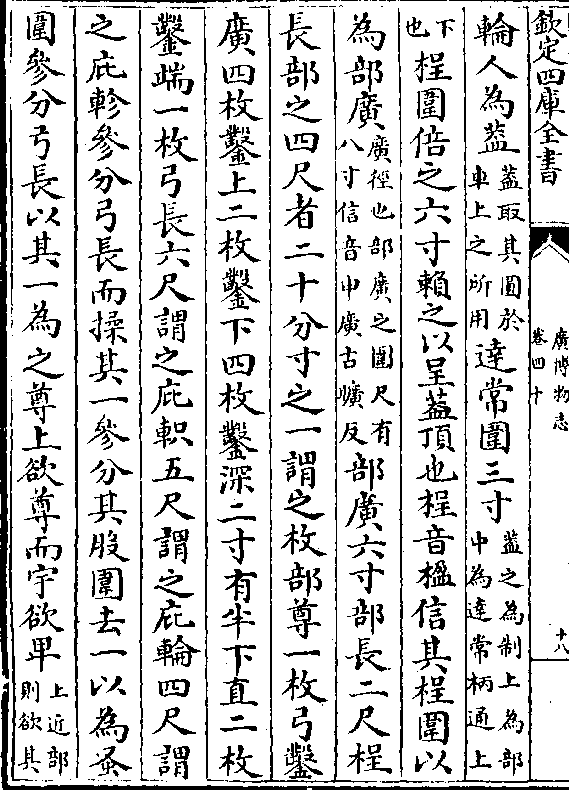 欽定四庫全書
廣博物志
卷四十
十八
輪人為蓋蓋取其圓於車上之所用達常圍三寸蓋之為制上為部中為達常柄通上
下也桯圍倍之六寸賴之以呈蓋頂也桯音楹信其桯圍以
為部廣廣徑也部廣之圍尺有八寸信音申廣古曠反部廣六寸部長二尺桯
長部之四尺者二十分寸之一謂之枚部尊一枚弓鑿
廣四枚鑿上二枚鑿下四枚鑿深二寸有半下直二枚
鑿端一枚弓長六尺謂之庇軹五尺謂之庇輪四尺謂
之庇軫參分弓長而揉其一參分其股圍去一以為蚤
圍參分弓長以其一為之尊上欲尊而宇欲卑上近部則欲其